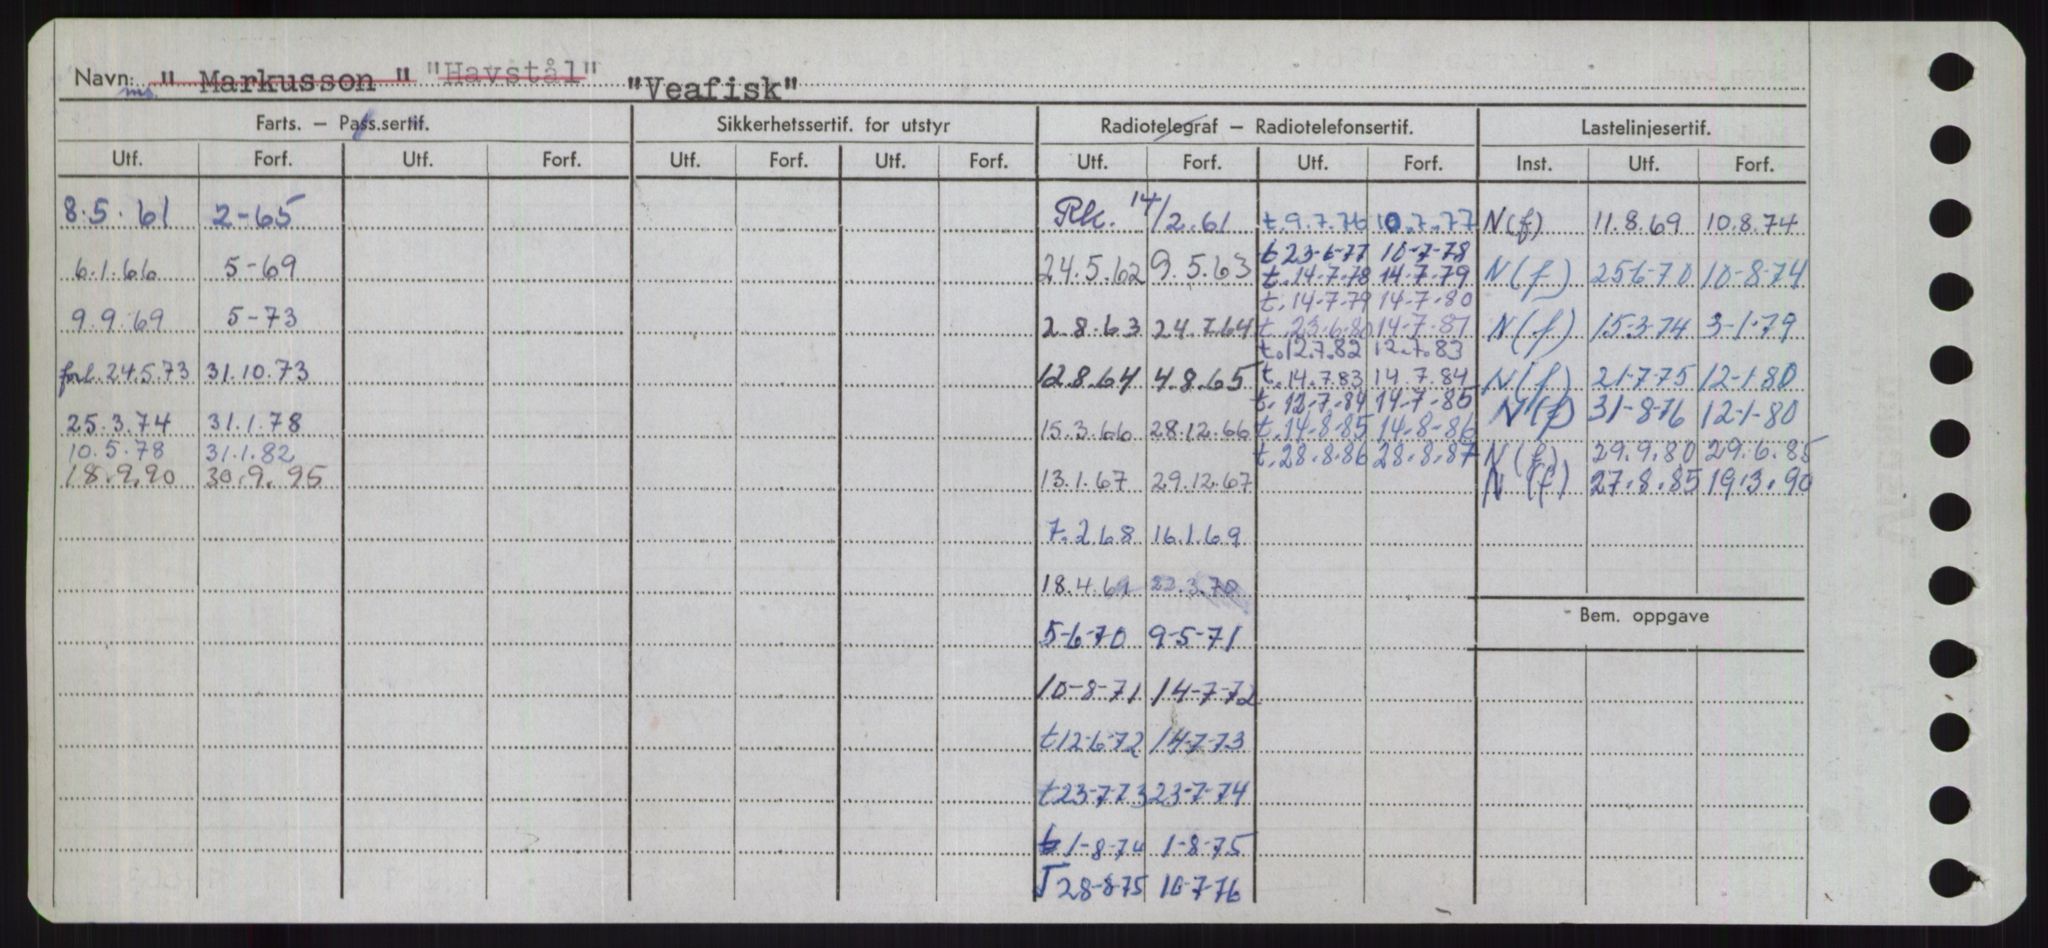 Navn: " Markusson " "Havstål" "Veafisk"
ms.
Farts. — Pass.sertif. Sikkerhetssertif. for utstyr Radiotelegraf — Radiotelefonsertif. Lastelinjesertif.
Utf. Forf. Utf. Forf. Utf. Forf. Utf. Forf. Utf. Forf. Utf. Forf. Inst. Utf. Forf.
8.5.61 2-65 Rk. 14/2.61 t.9.7.76 10.7.77 N(f) 11.8.69 10.8.74
t 23-6-77 10-7-78
6.1.66 5-69 24.5.62 9.5.63 t.14-7-78 14-7-79 N(f) 25-6-70 10-8-74
t.14-7-79 14-7-80
9.9.69 5-73 2.8.63 24.7.64 t.23.6.80 14-7-81 N(f) 15-3-74 3-1-79
t.12.7.82 12.7.83
forl. 24.5.73 31.10.73 12.8.64 4.8.65 t.14.7.83 14.7.84 N(f) 21-7-75 12-1-80
t.12-7-84 14-7-85 N(f) 31-8-76 12-1-80
25.3.74 31.1.78 15.3.66 28.12.66 t.14-8-85 14-8-86
10.5.78 31.1.82 t.28-8-86 28-8-87 N(f) 29.9.80 29.6.85
18.9.90 30.9.95 13.1.67 29.12.67 N(f) 27.8.85 19.3.90
7.2.68 16.1.69
18.4.69 22.3.70
Bem. oppgave
5-6-70 9-5-71
10-8-71 14-7-72
t12-6-72 14-7-73
t23-7-73 23-7-74
t 1-8-74 1-8-75
T 28-8-75 10-7-76